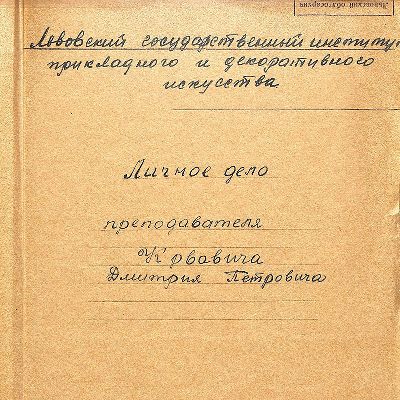 Львовский государственный институт
прикладного и декоративного
искусства
Личное дело
преподавателя
Крвавича
Дмитрия Петровича